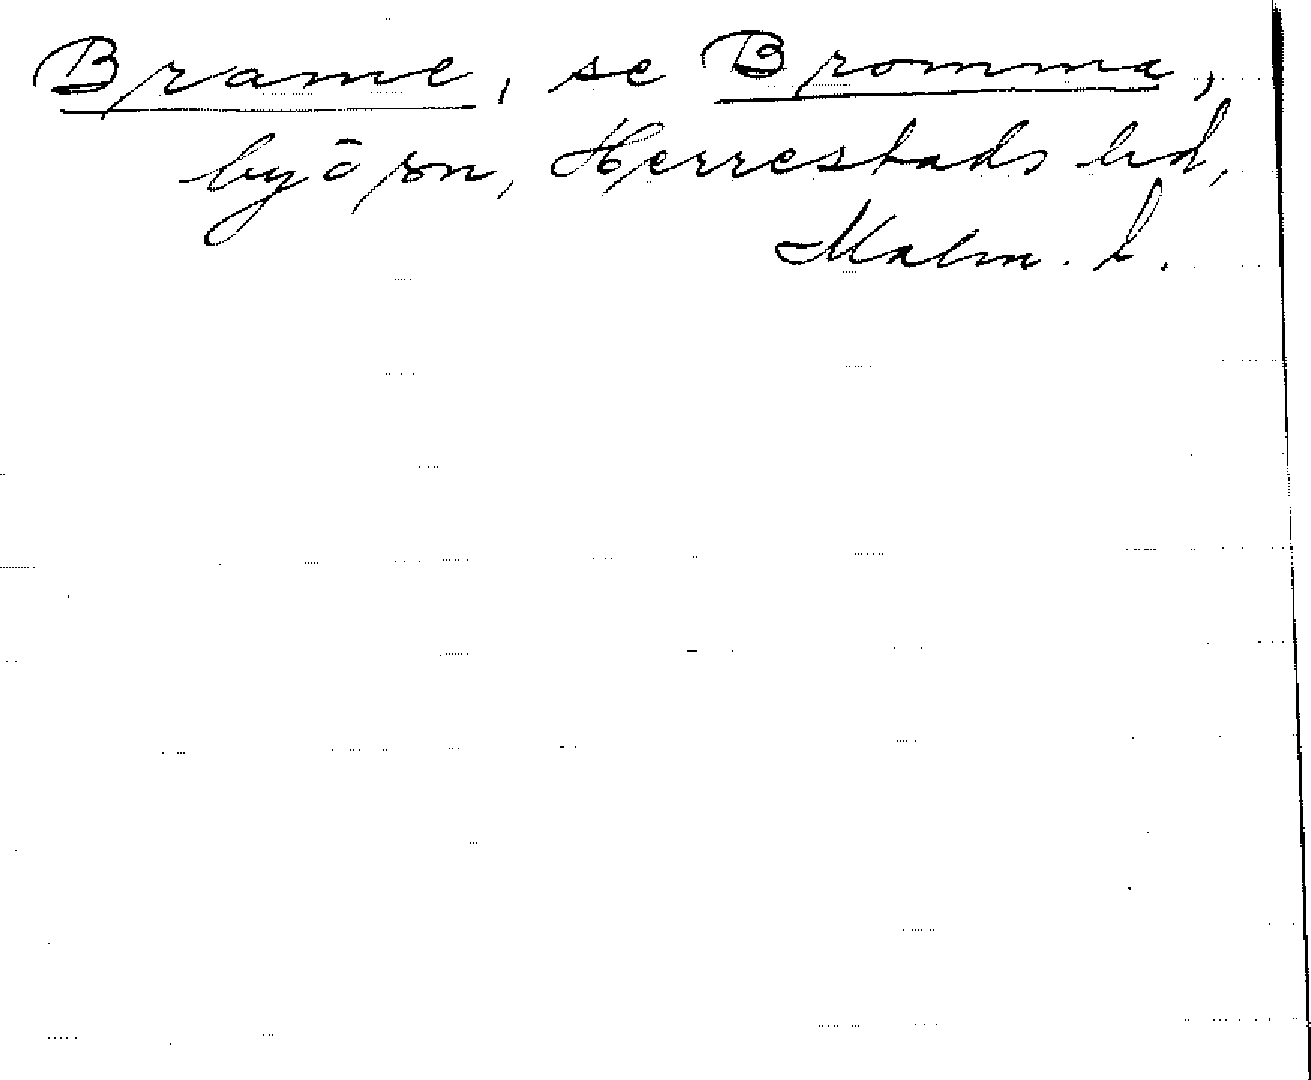 Brame, se Bromma,
by o sn, Herrestads hd,
Malm. l.